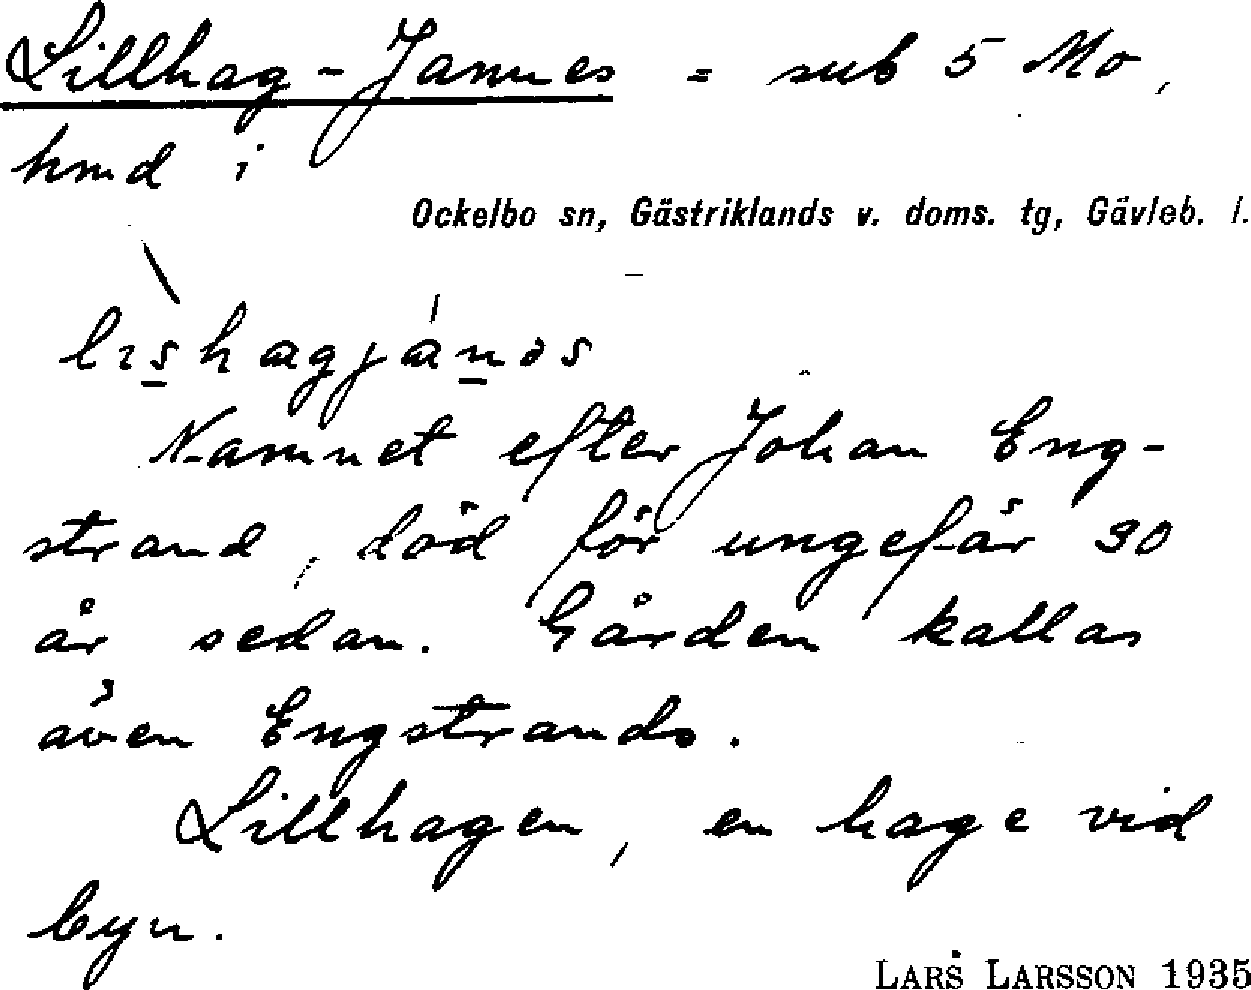 Lillhag-Jannes = sub 5 Mo,
hmd i
Ockelbo sn, Gästriklands v. doms. tg, Gävleb. l.
Namnet efter Johan Eng-
strand, död för ungefär 30
år sedan. Gården kallas
även Engstrands.
Lillhagen, en hage vid
byn.
LARS LARSSON 1935